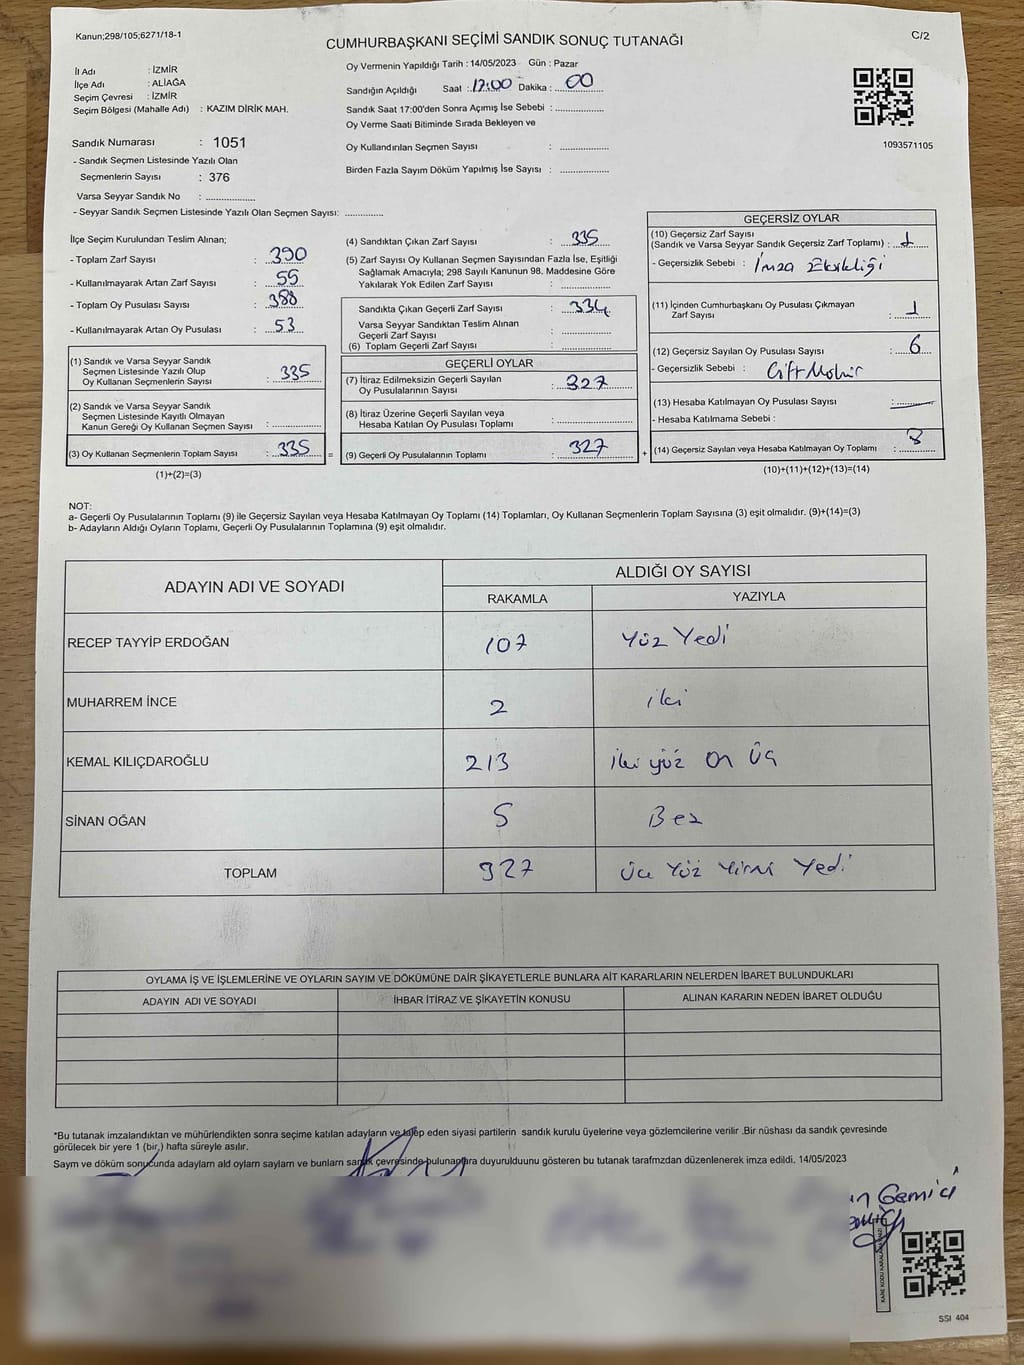 Kanun;298/105;6271/18-1
C/2
CUMHURBAŞKANI SEÇİMİ SANDIK SONUÇ TUTANAĞI
İl Adı : İZMİR
İlçe Adı : ALİAĞA
Seçim Çevresi : İZMİR
Seçim Bölgesi (Mahalle Adı) : KAZIM DİRİK MAH.
Sandık Numarası : 1051
- Sandık Seçmen Listesinde Yazılı Olan
Seçmenlerin Sayısı : 376
Varsa Seyyar Sandık No : ..............
- Seyyar Sandık Seçmen Listesinde Yazılı Olan Seçmen Sayısı: ............
Oy Vermenin Yapıldığı Tarih : 14/05/2023 Gün : Pazar
Sandığın Açıldığı Saat : 17:00 Dakika : 00
Sandık Saat 17:00'den Sonra Açımış İse Sebebi : ..............
Oy Verme Saati Bitiminde Sırada Bekleyen ve
Oy Kullandırılan Seçmen Sayısı : ..............
Birden Fazla Sayım Döküm Yapılmış İse Sayısı : ..............
1093571105
İlçe Seçim Kurulundan Teslim Alınan;
- Toplam Zarf Sayısı : 390
- Kullanılmayarak Artan Zarf Sayısı : 55
- Toplam Oy Pusulası Sayısı : 388
- Kullanılmayarak Artan Oy Pusulası : 53
(1) Sandık ve Varsa Seyyar Sandık
Seçmen Listesinde Yazılı Olup
Oy Kullanan Seçmenlerin Sayısı : 335
(2) Sandık ve Varsa Seyyar Sandık
Seçmen Listesinde Kayıtlı Olmayan
Kanun Gereği Oy Kullanan Seçmen Sayısı : ..............
(3) Oy Kullanan Seçmenlerin Toplam Sayısı : 335 =
(1)+(2)=(3)
(4) Sandıktan Çıkan Zarf Sayısı : 335
(5) Zarf Sayısı Oy Kullanan Seçmen Sayısından Fazla İse, Eşitliği
Sağlamak Amacıyla; 298 Sayılı Kanunun 98. Maddesine Göre
Yakılarak Yok Edilen Zarf Sayısı : ..............
Sandıkta Çıkan Geçerli Zarf Sayısı : 334
Varsa Seyyar Sandıktan Teslim Alınan
Geçerli Zarf Sayısı : ..............
(6) Toplam Geçerli Zarf Sayısı : ..............
GEÇERLİ OYLAR
(7) İtiraz Edilmeksizin Geçerli Sayılan
Oy Pusulalarının Sayısı : 327
(8) İtiraz Üzerine Geçerli Sayılan veya
Hesaba Katılan Oy Pusulası Toplamı : ..............
(9) Geçerli Oy Pusulalarının Toplamı : 327 +
GEÇERSİZ OYLAR
(10) Geçersiz Zarf Sayısı
(Sandık ve Varsa Seyyar Sandık Geçersiz Zarf Toplamı) : 1
- Geçersizlik Sebebi : İmza Eksikliği
(11) İçinden Cumhurbaşkanı Oy Pusulası Çıkmayan
Zarf Sayısı : 1
(12) Geçersiz Sayılan Oy Pusulası Sayısı : 6
- Geçersizlik Sebebi : Çift Mühür
(13) Hesaba Katılmayan Oy Pusulası Sayısı : ..............
- Hesaba Katılmama Sebebi :
(14) Geçersiz Sayılan veya Hesaba Katılmayan Oy Toplamı : 8
(10)+(11)+(12)+(13)=(14)
NOT:
a- Geçerli Oy Pusulalarının Toplamı (9) ile Geçersiz Sayılan veya Hesaba Katılmayan Oy Toplamı (14) Toplamları, Oy Kullanan Seçmenlerin Toplam Sayısına (3) eşit olmalıdır. (9)+(14)=(3)
b- Adayların Aldığı Oyların Toplamı, Geçerli Oy Pusulalarının Toplamına (9) eşit olmalıdır.
ADAYIN ADI VE SOYADI
ALDIĞI OY SAYISI
RAKAMLA YAZIYLA
RECEP TAYYİP ERDOĞAN 107 Yüz Yedi
MUHARREM İNCE 2 iki
KEMAL KILIÇDAROĞLU 213 iki yüz on üç
SİNAN OĞAN 5 Beş
TOPLAM 327 üç Yüz Yirmi Yedi
OYLAMA İŞ VE İŞLEMLERİNE VE OYLARIN SAYIM VE DÖKÜMÜNE DAİR ŞİKAYETLERLE BUNLARA AİT KARARLARIN NELERDEN İBARET BULUNDUKLARI
ADAYIN ADI VE SOYADI İHBAR İTİRAZ VE ŞİKAYETİN KONUSU ALINAN KARARIN NEDEN İBARET OLDUĞU
*Bu tutanak imzalandıktan ve mühürlendikten sonra seçime katılan adayların ve talep eden siyasi partilerin sandık kurulu üyelerine veya gözlemcilerine verilir .Bir nüshası da sandık çevresinde
görülecek bir yere 1 (bir,) hafta süreyle asılır.
Saym ve döküm sonucunda adaylarn ald oylarn saylarn ve bunlarn sandk çevresinde bulunanlara duyurulduunu gösteren bu tutanak tarafmzdan düzenlenerek imza edildi. 14/05/2023
Gemici
SSI 404